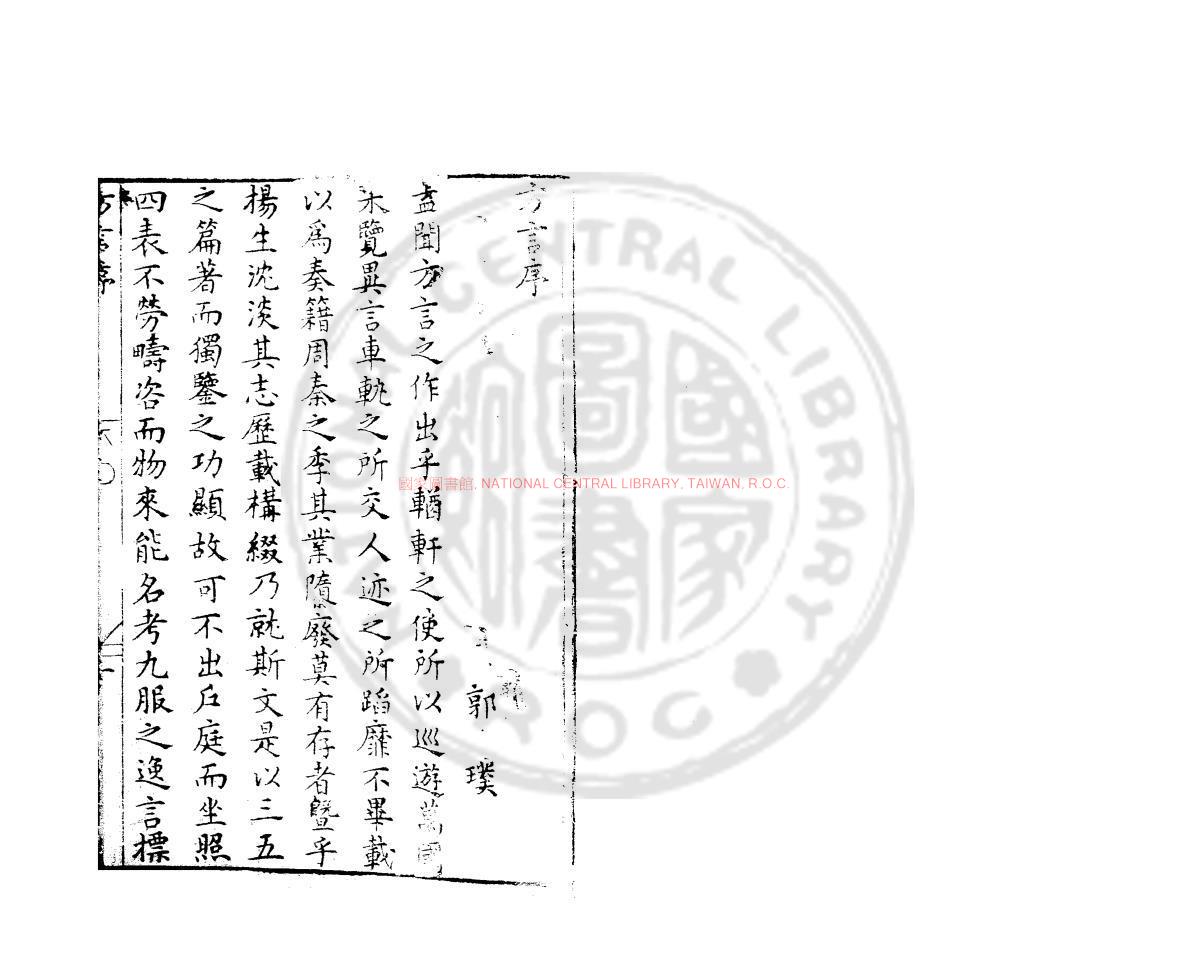 方言序
郭璞
盖聞方言之作出乎輶軒之使所以巡遊萬國
采覽異言車軌之所交人迹之所蹈靡不畢載
以爲奏籍周秦之季其業隳廢莫有存者暨乎
楊生沈淡其志歷載構綴乃就斯文是以三五
之篇著而獨鑒之功顯故可不出戶庭而坐照
四表不勞疇咨而物來能名考九服之逸言標
方言序
國家圖書館, NATIONAL CENTRAL LIBRARY, TAIWAN, R.O.C.
NATIONAL CENTRAL LIBRARY
R.O.C
國家圖書館